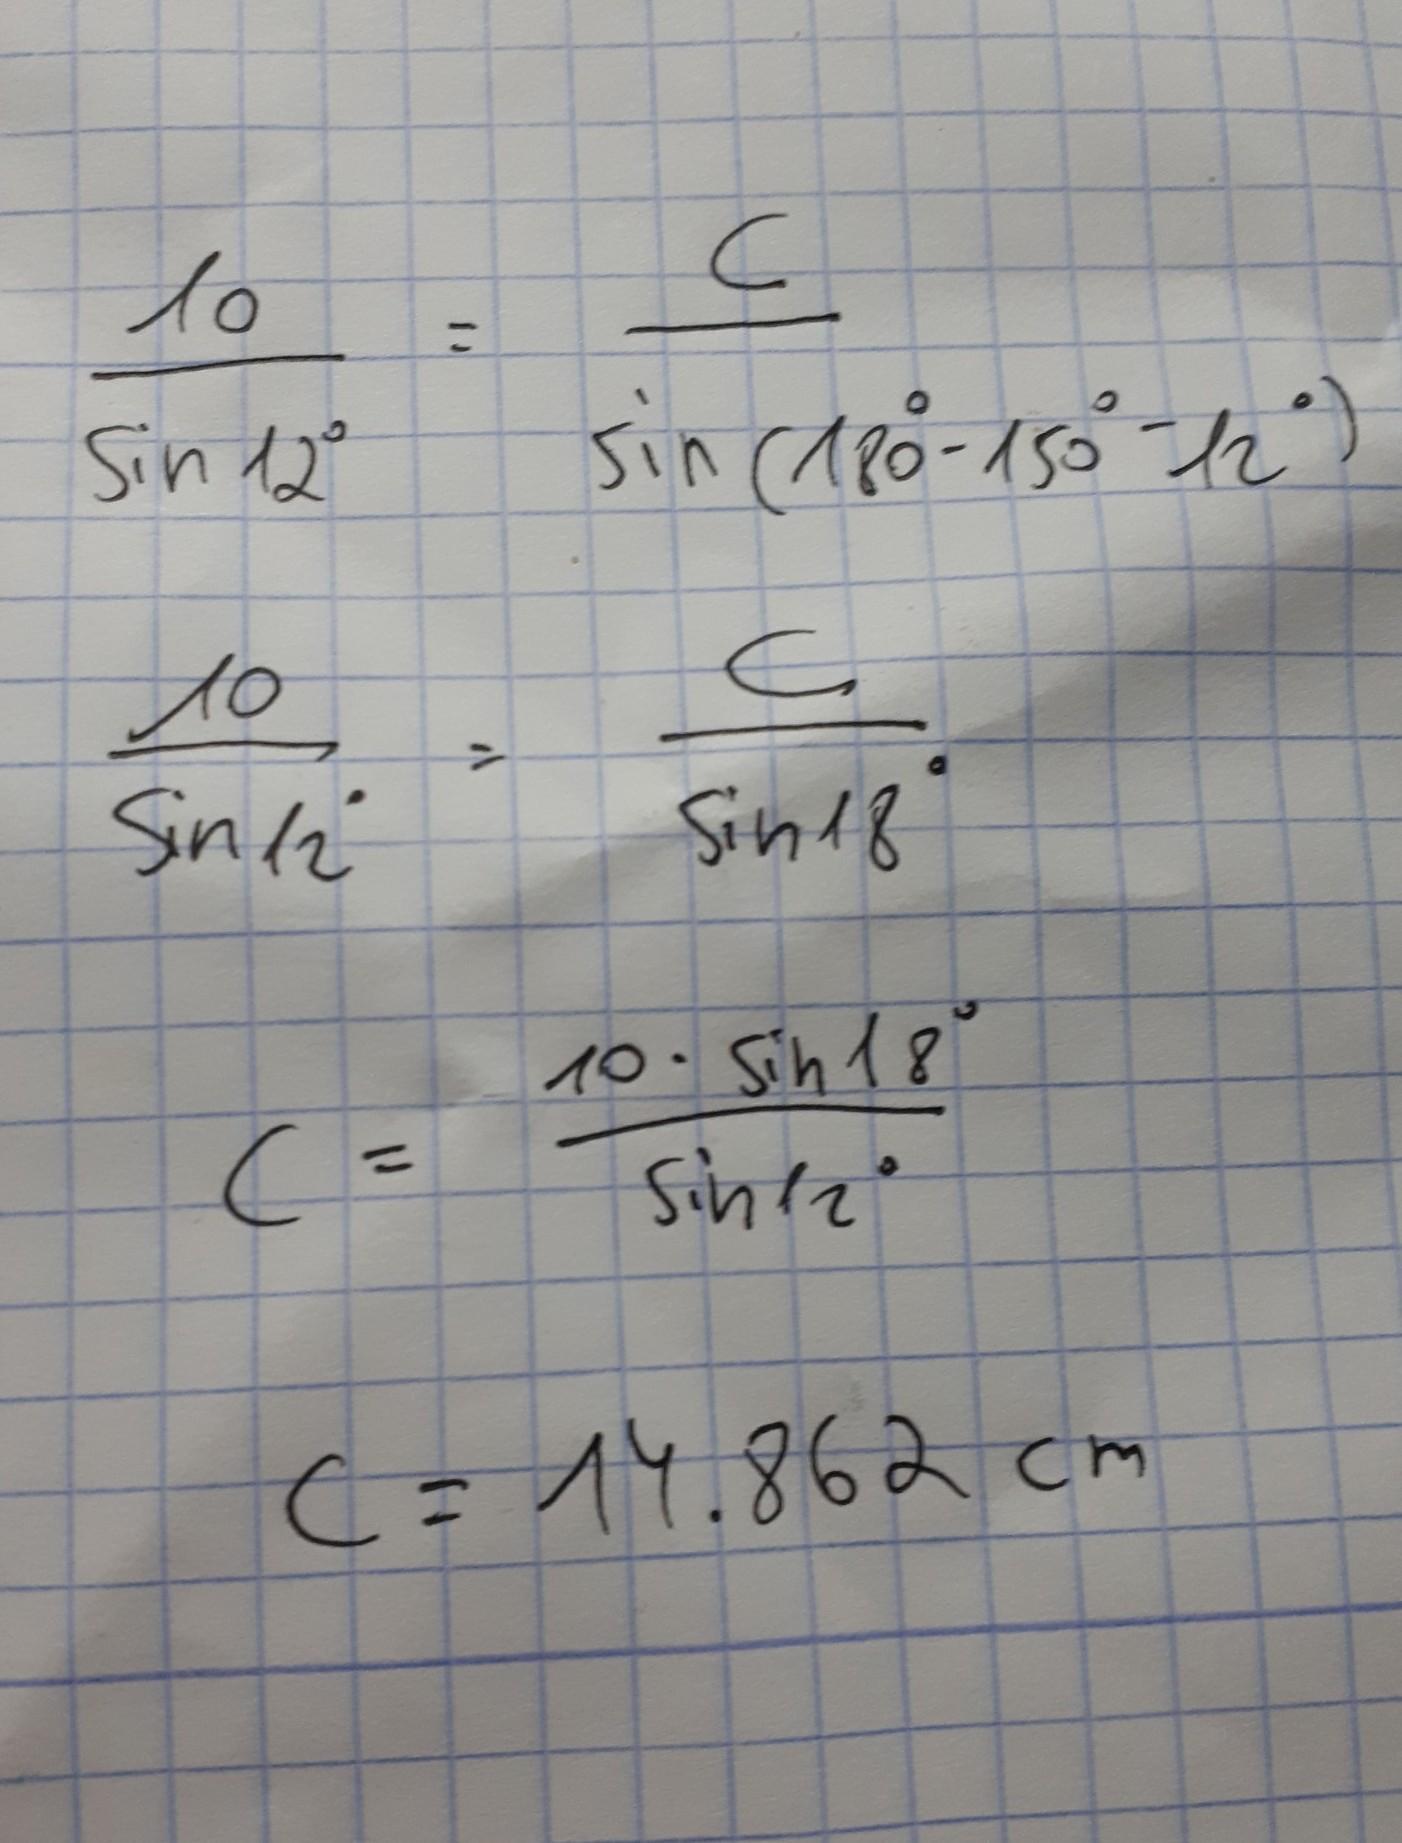 10 / sin 12° = C / sin (180° - 150° - 12°)
10 / sin 12° = C / sin 18°
C = 10 · sin 18° / sin 12°
C = 14.862 cm